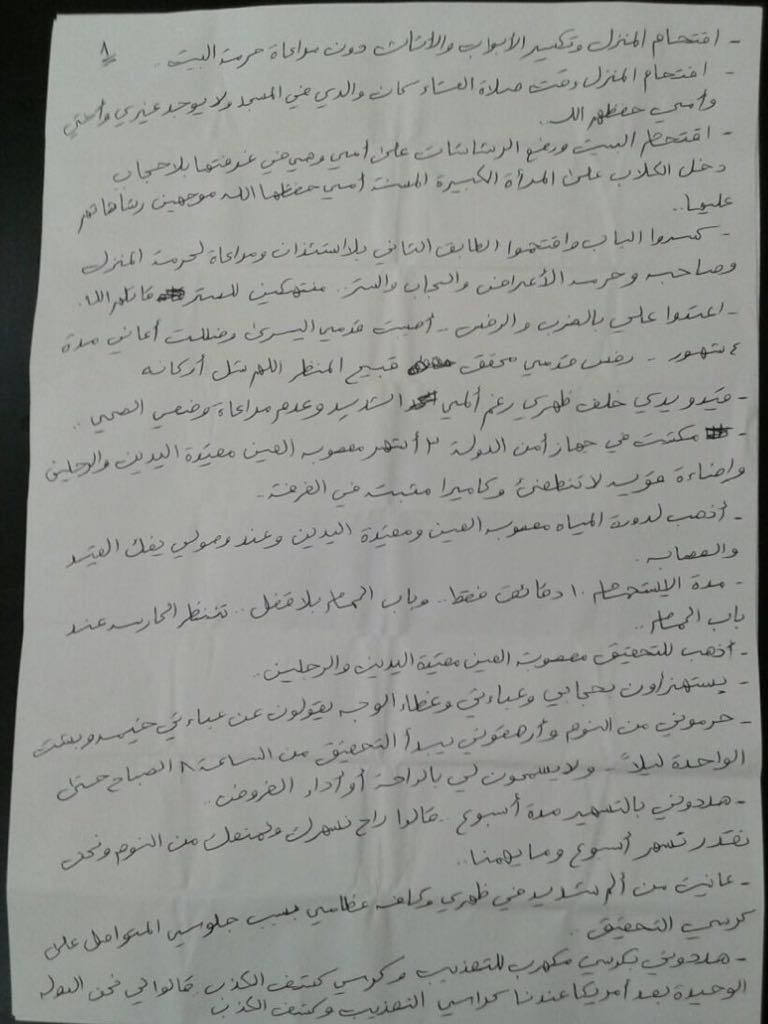 ١
- اقتحام المنزل وتكسير الأبواب والأثاث دون مراعاة حرمة البيت ..
- اقتحام المنزل وقت صلاة العشاء كان والدي في المسجد ولا يوجد غيري وأختي
وأمي حفظهم الله ..
- اقتحام البيت ورفع الرشاشات على أمي وهي في غرفتها بلا حجاب
دخل الكلاب على المرأة الكبيرة المسنة أمي حفظها الله موجهين رشاشاتهم
عليها ..
- كسروا الباب واقتحموا الطابق الثاني بلا استئذان ومراعاة لحرمة المنزل
وصاحبه وحرمة الأعراض والحجاب والستر .. منتهكين للستر قاتلهم الله
- اعتدوا علي بالضرب والرفس .. أصيبت قدمي اليسرى وظللت أعاني مدة
٤ شهور - رفس قدمي محقق قبيح المنظر اللهم شل أركانه
- قيدو يدي خلف ظهري رغم ألمي الشديد وعدم مراعاة وضعي الصحي ..
- مكثت في جهاز أمن الدولة ٣ أشهر معصوبة العين مقيدة اليدين والرجلين
واضاءة قوية لا تنطفئ وكاميرا مثبتة في الغرفة ..
- أذهب لدورة المياه معصوبة العين ومقيدة اليدين وعند وصولي يفك القيد
والعصابه .
- مدة الإستحمام ١٠ دقائق فقط .. وباب الحمام بلا قفل .. تنتظر الحارسه عند
باب الحمام ..
- أذهب للتحقيق معصوبة العين مقيدة اليدين والرجلين ..
- يستهزاون بحجابي وعباءتي وغطاء الوجه يقولون عن عباءتي خيمه وبشت
- حرموني من النوم وأرهقوني يبدأ التحقيق من الساعة ٨ الصباح حتى
الواحدة ليلاً - ولا يسمحون لي بالراحة أو أداء الفروض ..
- هددوني بالتسهير مدة أسبوع .. قالوا راح نسهرك ونمنعك من النوم ونحن
نقدر نسهر أسبوع وما يهمنا ..
- عانيت من ألم شديد في ظهري وكافة عظامي بسبب جلوسي المتواصل على
كرسي التحقيق ..
- هددوني بكرسي مكهرب للتعذيب وكرسي كشف الكذب قالوا لي نحن الدولة
الوحيدة بعد أمريكا عندنا كراسي التعذيب وكشف الكذب